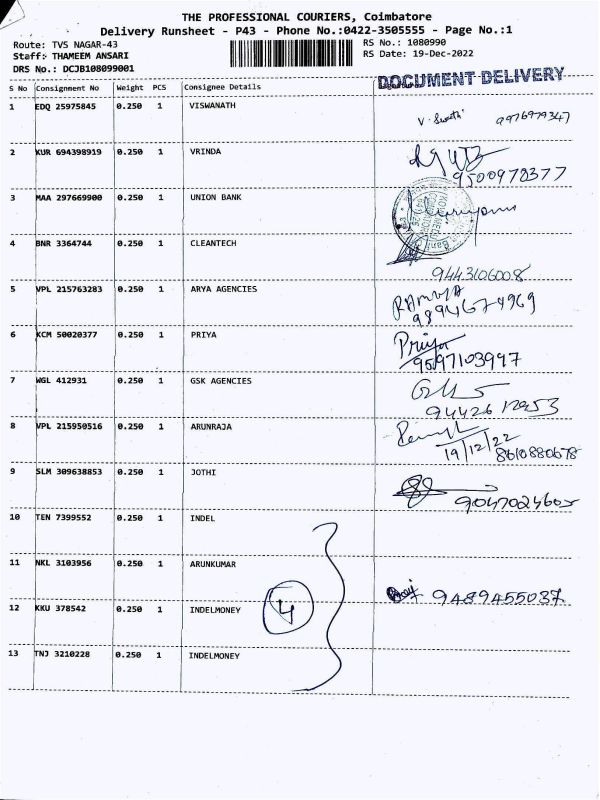 THE PROFESSIONAL COURIERS, Coimbatore
Delivery Runsheet - P43 - Phone No.:0422-3505555 - Page No.:1
Route: TVS NAGAR-43 RS No.: 1080990
Staff: THAMEEM ANSARI RS Date: 19-Dec-2022
DRS No.: DCJB108099001
DOCUMENT DELIVERY
S No Consignment No Weight PCS Consignee Details
1 EDQ 25975845 0.250 1 VISWANATH
2 KUR 694398919 0.250 1 VRINDA
9500978377
3 MAA 297669900 0.250 1 UNION BANK
4 BNR 3364744 0.250 1 CLEANTECH
9443106008
5 VPL 215763283 0.250 1 ARYA AGENCIES
RAMYA
9894674969
6 KCM 50020377 0.250 1 PRIYA
Priya
9597103997
7 WGL 412931 0.250 1 GSK AGENCIES
8 VPL 215950516 0.250 1 ARUNRAJA
19/12/22
8610880678
9 SLM 309638853 0.250 1 JOTHI
10 TEN 7399552 0.250 1 INDEL
11 NKL 3103956 0.250 1 ARUNKUMAR
9489455037
12 KKU 378542 0.250 1 INDELMONEY
4
13 TNJ 3210228 0.250 1 INDELMONEY